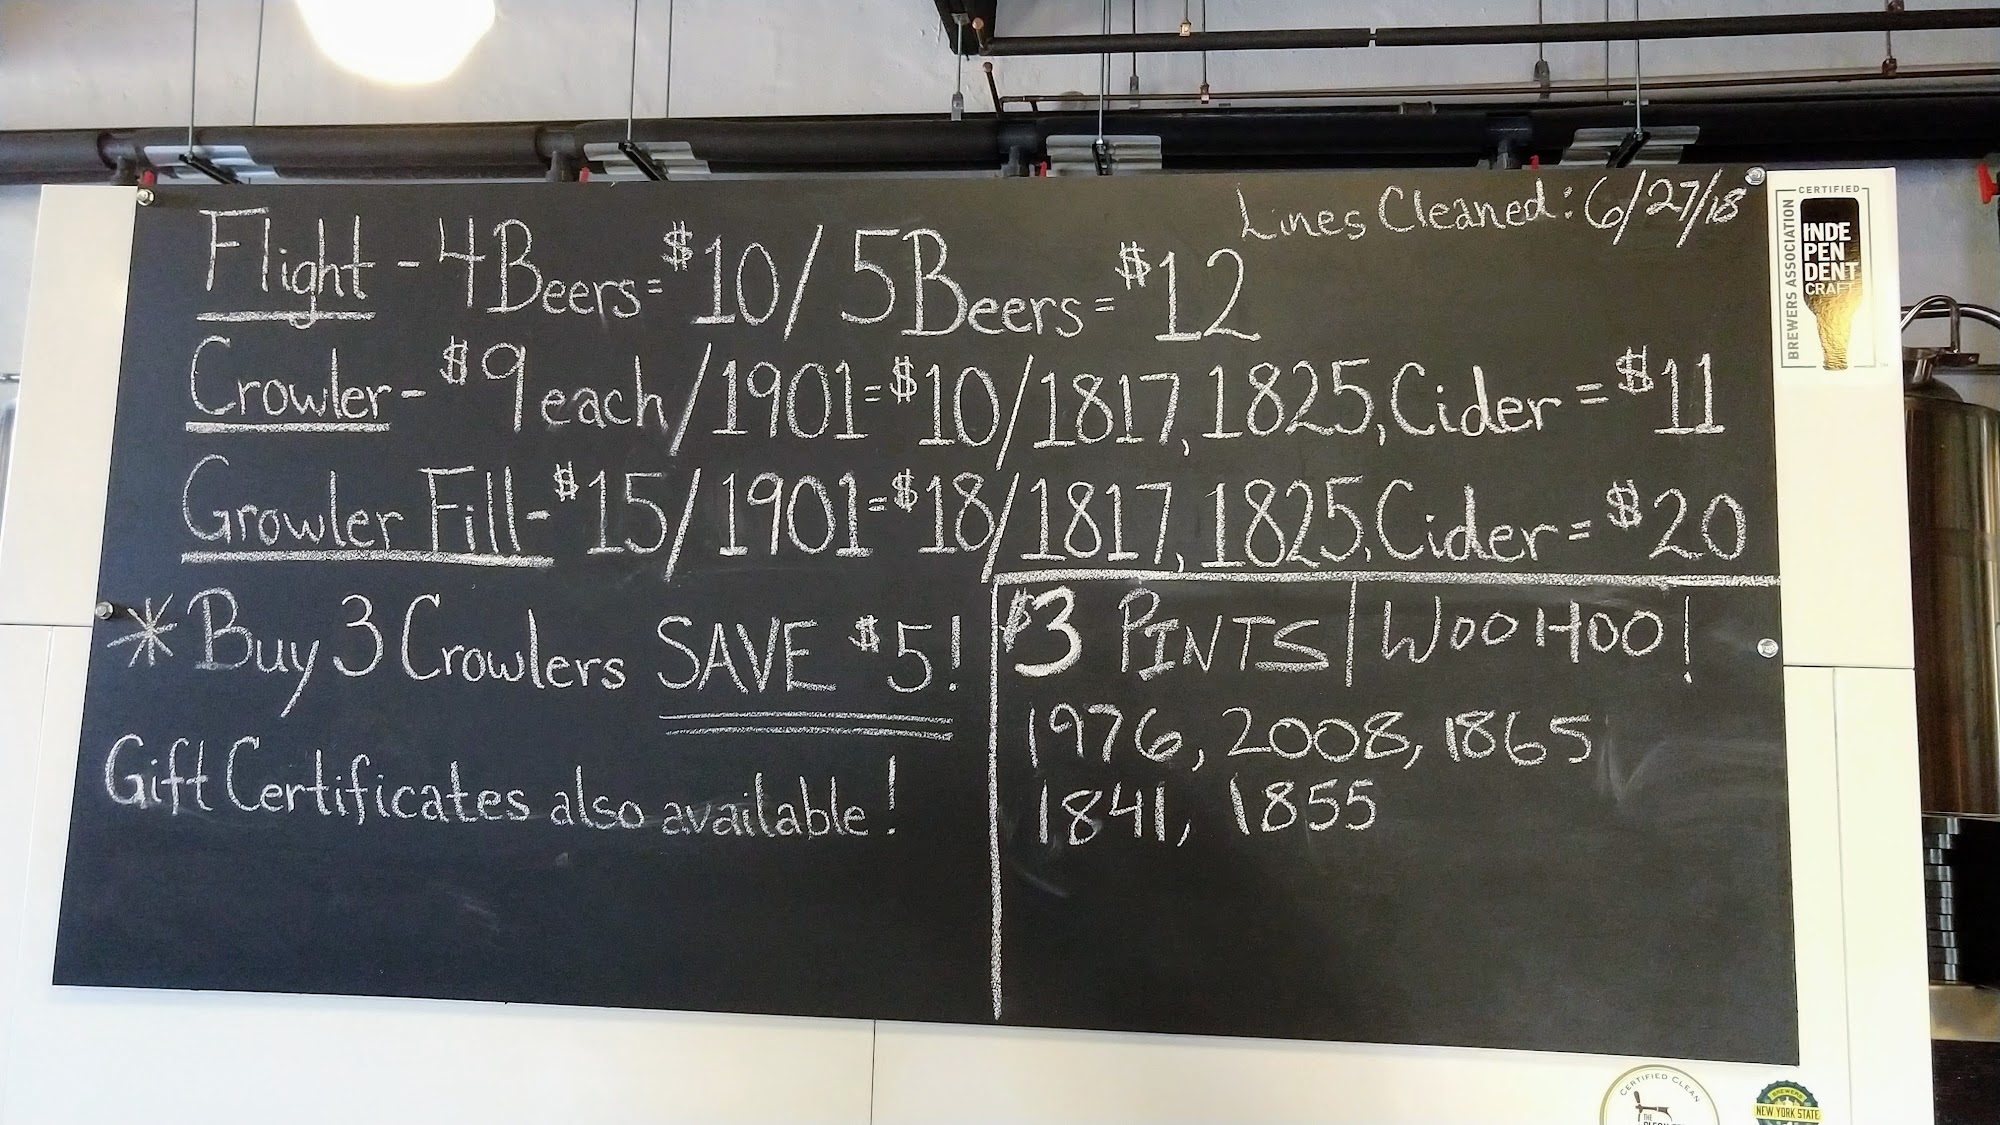 Lines Cleaned: 6/27/18
Flight - 4 Beers = $10 / 5 Beers = $12
Crowler - $9 each / 1901 = $10 / 1817, 1825, Cider = $11
Growler Fill - $15 / 1901 = $18 / 1817, 1825, Cider = $20
* Buy 3 Crowlers SAVE $5!
Gift Certificates also available!
$3 PINTS | WOOHOO!
1976, 2008, 1865
1841, 1855
CERTIFIED
BREWERS ASSOCIATION
INDE
PEN
DENT
CRAFT
CERTIFIED CLEAN
THE
BREWERS
NEW YORK STATE